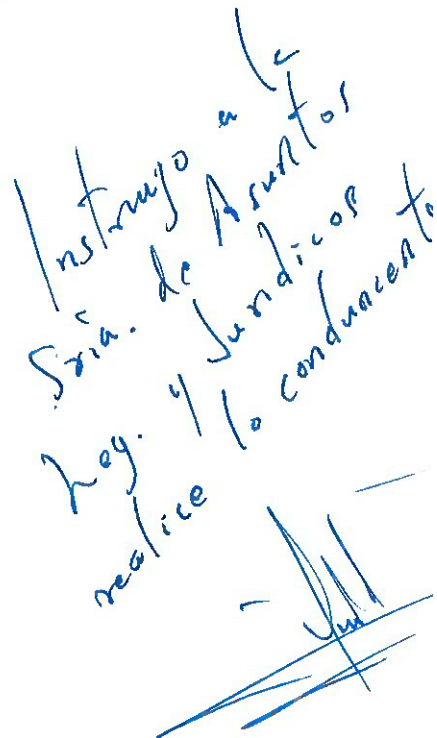 Instruyo a la
Sria. de Asuntos
Leg. y Jurídicos
realice lo conducente